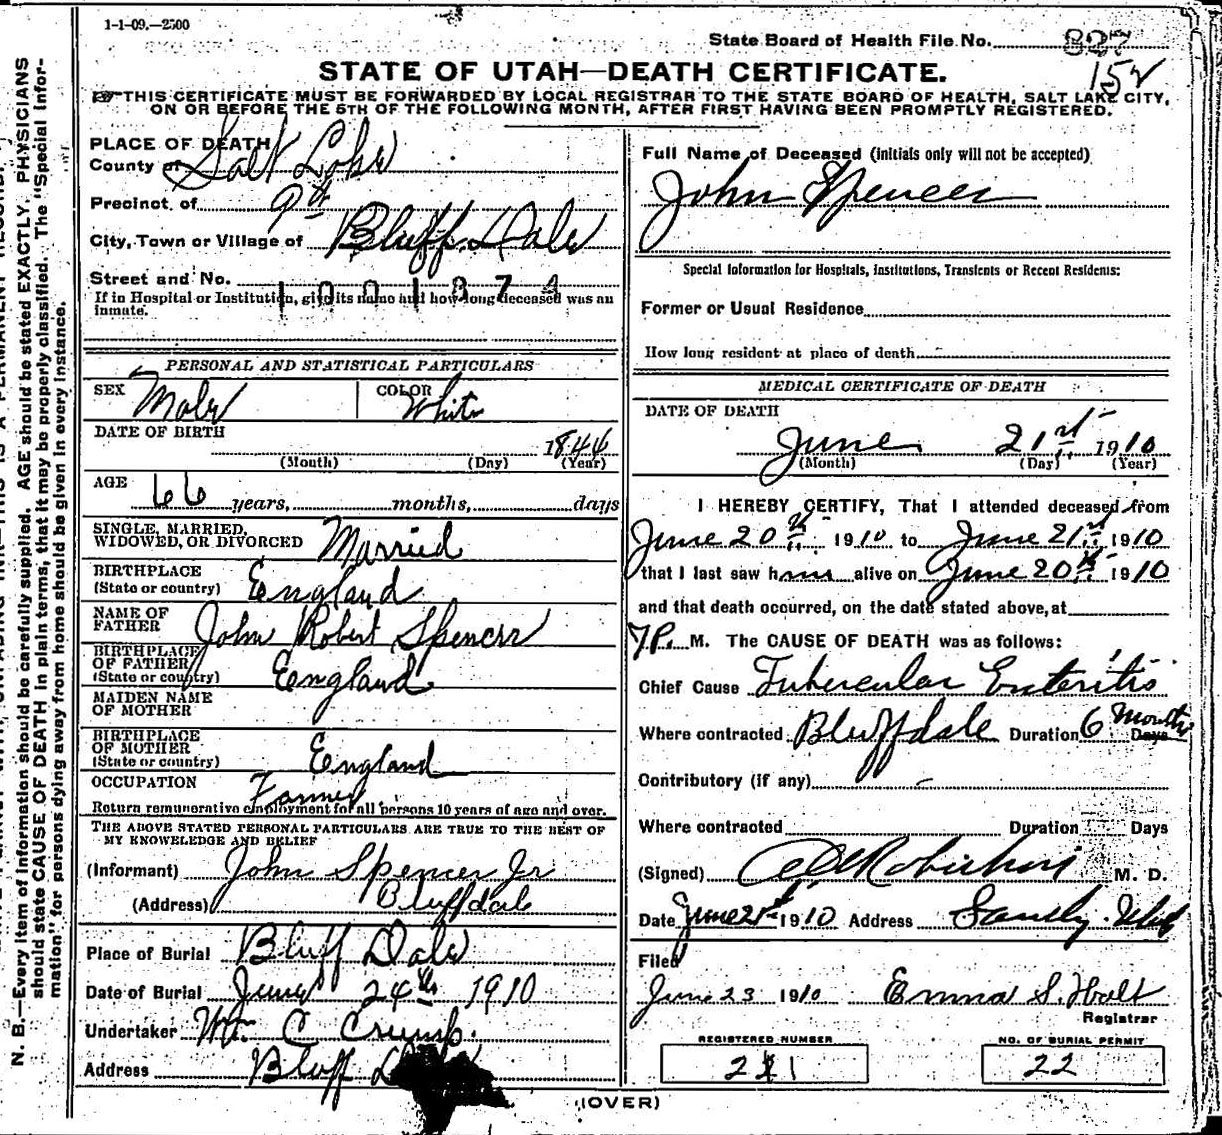 1-1-09.—2500
State Board of Health File No. 827
152
STATE OF UTAH—DEATH CERTIFICATE.
THIS CERTIFICATE MUST BE FORWARDED BY LOCAL REGISTRAR TO THE STATE BOARD OF HEALTH, SALT LAKE CITY,
ON OR BEFORE THE 5TH OF THE FOLLOWING MONTH, AFTER FIRST HAVING BEEN PROMPTLY REGISTERED.
PLACE OF DEATH
County of Salt Lake
Precinct of 9th
City, Town or Village of Bluff Dale
Street and No.
1001874
If in Hospital or Institution, give its name and how long deceased was an
inmate.
PERSONAL AND STATISTICAL PARTICULARS
SEX Male COLOR White
DATE OF BIRTH 1844
(Month) (Day) (Year)
AGE 66 years, months, days
SINGLE, MARRIED,
WIDOWED, OR DIVORCED Married
BIRTHPLACE
(State or country) England
NAME OF
FATHER John Robert Spencer
BIRTHPLACE
OF FATHER
(State or country) England
MAIDEN NAME
OF MOTHER
BIRTHPLACE
OF MOTHER
(State or country) England
OCCUPATION Farmer
Return remunerative employment for all persons 10 years of age and over.
THE ABOVE STATED PERSONAL PARTICULARS ARE TRUE TO THE BEST OF
MY KNOWLEDGE AND BELIEF
(Informant) John Spencer Jr
(Address) Bluffdale
Place of Burial Bluff Dale
Date of Burial June 24th 1910
Undertaker Mr. C Crump.
Address Bluff
Full Name of Deceased (initials only will not be accepted)
John Spencer
Special Information for Hospitals, Institutions, Transients or Recent Residents:
Former or Usual Residence
How long resident at place of death
MEDICAL CERTIFICATE OF DEATH
DATE OF DEATH
June 21st 1910
(Month) (Day) (Year)
I HEREBY CERTIFY, That I attended deceased from
June 20th 1910 to June 21st 1910
that I last saw him alive on June 20th 1910
and that death occurred, on the date stated above, at
7P. M. The CAUSE OF DEATH was as follows:
Chief Cause Tubercular Enteritis
Where contracted Bluffdale Duration 6 Months Days
Contributory (if any) -
Where contracted Duration Days
(Signed) M. D.
Date June 21st 1910 Address Sandy. Utah
Filed
June 23 1910 Emma S. Holt
Registrar
REGISTERED NUMBER
NO. OF BURIAL PERMIT
22
(OVER)
N. B.—Every item of information should be carefully supplied. AGE should be stated EXACTLY. PHYSICIANS
should state CAUSE OF DEATH in plain terms, that it may be properly classified. The "Special Infor-
mation" for persons dying away from home should be given in every instance.